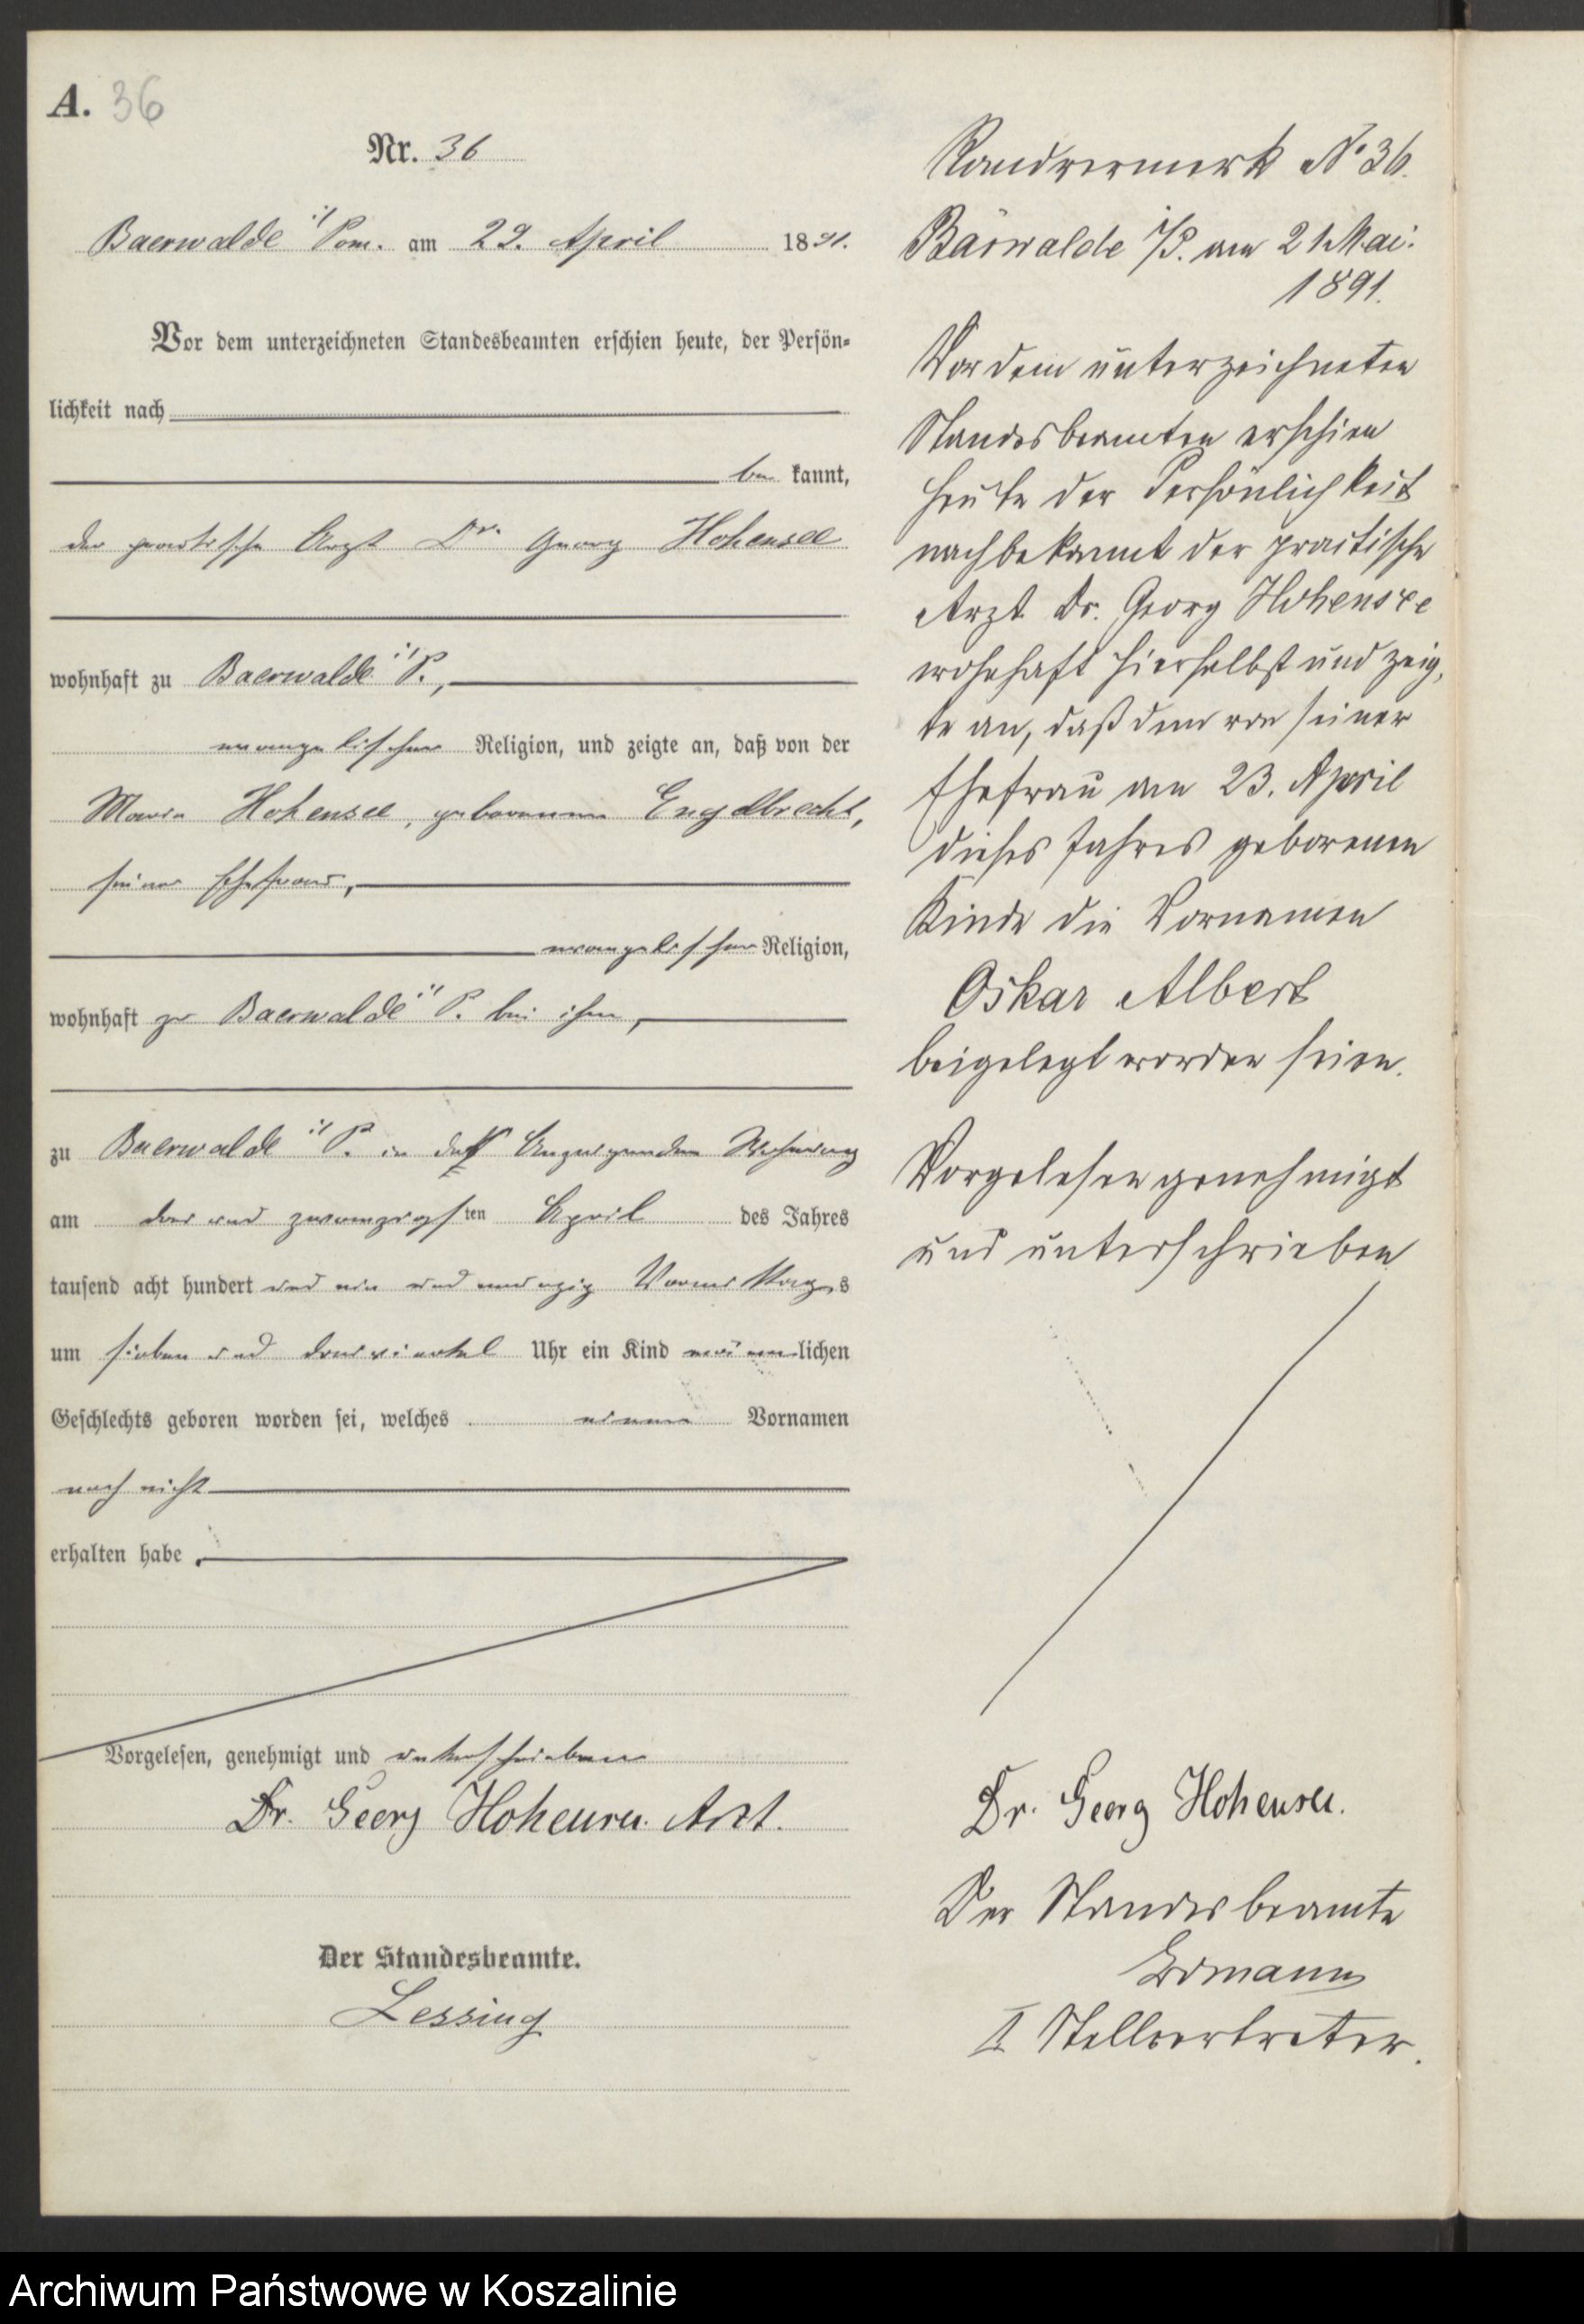 A. 36
Nr. 36
Baerwalde i/ Pom. am 29. April 1891.
Vor dem unterzeichneten Standesbeamten erschien heute, der Persön-
lichkeit nach
be kannt,
der practische Arzt Dr. Georg Hohensee
wohnhaft zu Baerwalde i/ P.,
evangelischer Religion, und zeigte an, daß von der
Maria Hohensee, geborenen Engelbrecht,
seiner Ehefrau,
evangelischer Religion,
wohnhaft zu Baerwalde i/ P. bei ihm,
zu Baerwalde i/ P. in des Anzeigenden Wohnung
am drei und zwanzigsten April des Jahres
tausend acht hundert und ein und neunzig Vormittags
um sieben und dreiviertel Uhr ein Kind männlichen
Geschlechts geboren worden sei, welches einen Vornamen
noch nicht
erhalten habe.
Vorgelesen, genehmigt und unterschrieben
Dr. Georg Hohensee. Arzt.
Der Standesbeamte.
Lessing
Randvermerk No 36.
Bärwalde i/P. am 21 Mai.
1891.
Vor dem unterzeichneten
Standesbeamten erschien
heute der Persönlichkeit
nach bekannt der practische
Arzt Dr. Georg Hohensee
wohnhaft hierselbst und zeig,
te an, daß dem von seiner
Ehefrau am 23. April
dieses Jahres geborenen
Kinde die Vornamen
Oskar Albert
beigelegt worden seien.
Vorgelesen genehmigt
und unterschrieben
Dr. Georg Hohensee.
Der Standesbeamte
Ermann
II Stellvertreter.
Archiwum Państwowe w Koszalinie